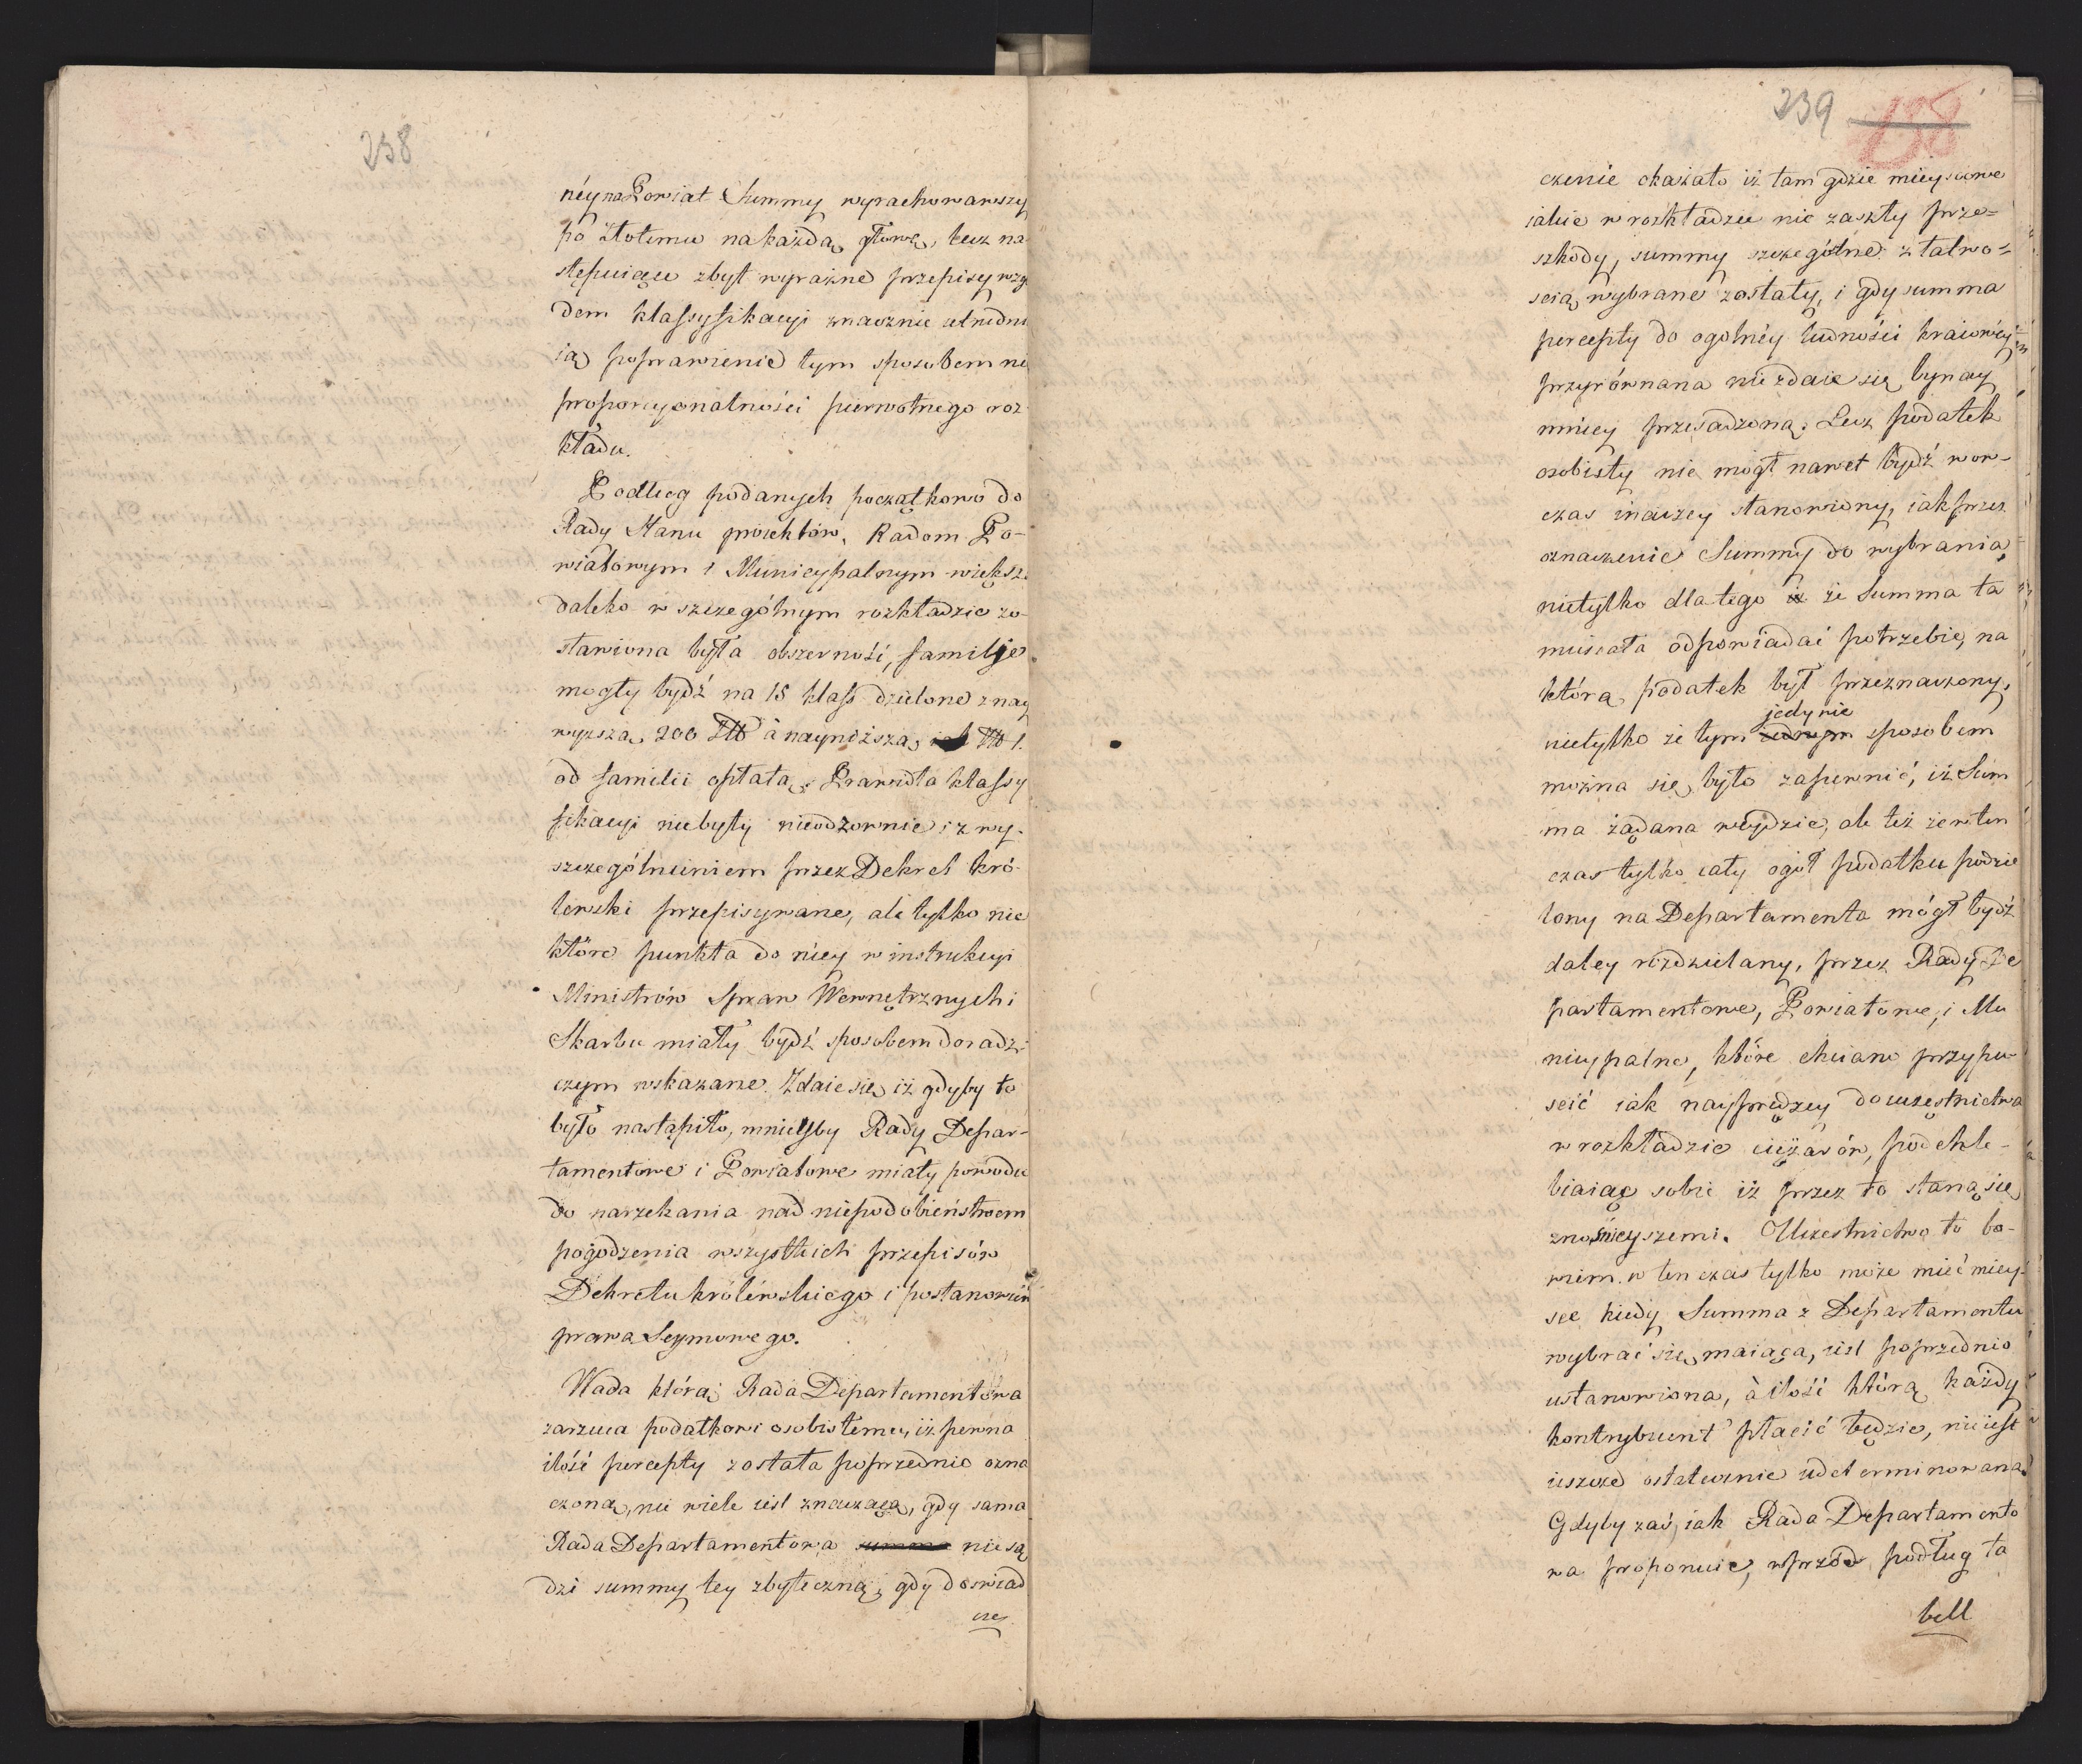 238
néy na Powiat Summy wyrachowawszy
po złotemu na każdą głowę, lecz na-
stępuiące zbyt wyraźne przepisy wzglę
dem klassyfikacyi znacznie utrudni
ią poprawienie tym sposobem nie
proporcyonalności pierwotnego roz
kładu.
Podług podanych początkowo do
Rady Stanu proiektów, Radom Po-
wiatowym i Municypalnym większa
daleko w szczególnym rozkładzie zo-
stawiona była obszerność, familje
mogły bydź na 18 klass dzielone z nay
wyższą 200 Złł à nayniższą Zł 1.
od familii opłatą. Prawidła klassy
fikacyi niebyły nieodzownie i z wy-
szczególnieniem przez Dekret kró-
lewski przepisywane, ale tylko nie
które punkta do niey w instrukcyi
Ministrów Spraw Wewnętrznych i
Skarbu miały bydź sposobem doradz-
czym wskazane. Zdaie się iż gdyby to
było nastąpiło, mnieyby Rady Depar-
tamentowe i Powiatowe miały powodu
do narzekania nad niepodobieństwem
pogodzenia wszystkich przepisów
Dekretu królewskiego i postanowień
prawa Seymowego.
Wada którą Rada Departamentowa
zarzuca podatkowi osobistemu, iż pewna
ilość percepty została poprzednio ozna
czoną, nie wiele iest znacząca, gdy sama
Rada Departamentowa summa nie są
dzi summy tey zbyteczną, gdy doswiad
cze
239 138
czenie okazało iż tam gdzie mieyscowe
iakie w rozkładzie nie zaszły prze-
szkody, summy szczególne z łatwo-
scią wybrane zostały, i gdy summa
percepty do ogolnéy ludności kraiowéy
przyrównana nie zdaie się bynay
mniey przesadzoną. Lecz podatek
osobisty nie mógł nawet bydź wow-
czas inaczey stanowiony, iak przez
oznaczenie Summy do wybrania,
nietylko dlatego iż że Summa ta
musiała odpowiadać potrzebie, na
którą podatek był przeznaczony,
jedynie
nietylko że tym iednym sposobem
można się było zapewnić, iż Sum
ma żądana weydzie, ale też że w ten
czas tylko cały ogół podatku podzie
lony na Departamenta mógł bydź
daley rozdzielany, przez Rady De
partamentowe, Powiatowe, i Mu
nicypalne, które chciano przypu-
scić iak nayprędzey do uczęstnictwa
w rozkładzie ciężarów, pochle-
biaiąc sobie iż przez to staną się
znośnieyszemi. Uczestnictwo to bo-
wiem w ten czas tylko może mieć miey-
sce kiedy Summa z Departamentu
wybrać się maiąca, iest poprzednio
ustanowiona, à ilość którą każdy
kontrybuent płacić będzie, nie iest
ieszcze ostatecznie udeterminowana.
Gdyby zaś, iak Rada Departamento
wa proponuie, wprzód podług ta
bell